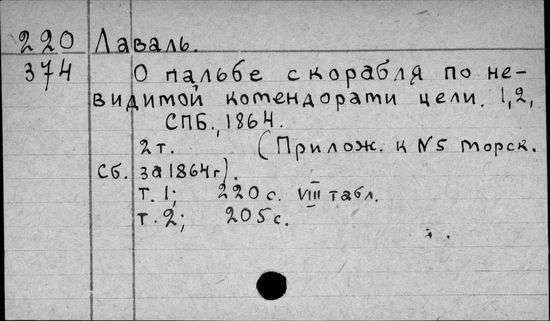 220 Лаваль.
374 О пальбе с корабля по не-
видимой комендорати цели. 1,2,
СПБ., 1864.
2 т. (Прилож. к №5 Морск.
Сб. за 1864 г).
Т. 1; 220 с. VIII табл.
Т. 2; 205 с.